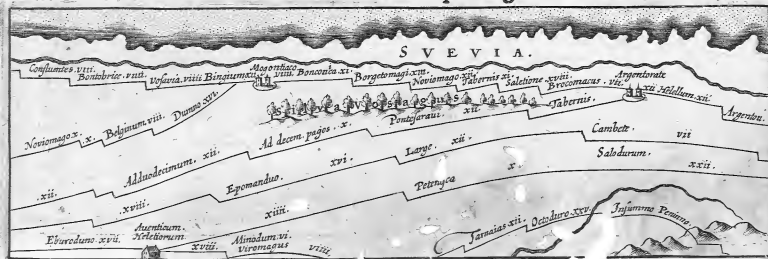 SVEVIA.
Confluentes.viii.
Bontobrice.viiii.
Vosavia.viiii
Bingium.xii
Mogontiaco.
viiii. Bonconica.xi.
Borgetomagi.xiii.
Noviomago.xii.
Tabernis.xi.
Saletione.xviii.
Brocomacus.vii.
Argentorate
xii Helellum.xii.
Argentou.
Noviomago.x.
x. Belginum.viii.
Dumno.xvi.
Silva Vosagus
Tabernis.
.xii.
Adduodecimum. xii.
Ad decem. pagos. x.
Pontesaravi. xii
Cambete. vii
.xviii.
Epomanduo. xvi.
Large. xii.
Salodurum. xxii.
xiiii.
Petenisca x.
Eburoduno.xvii.
Aventicum.
Heletiorum
xviii.
Minodum.vi.
Viromagus viiii.
Tarnaias.xii.
Octoduro.xxv.
Insummo Penino.